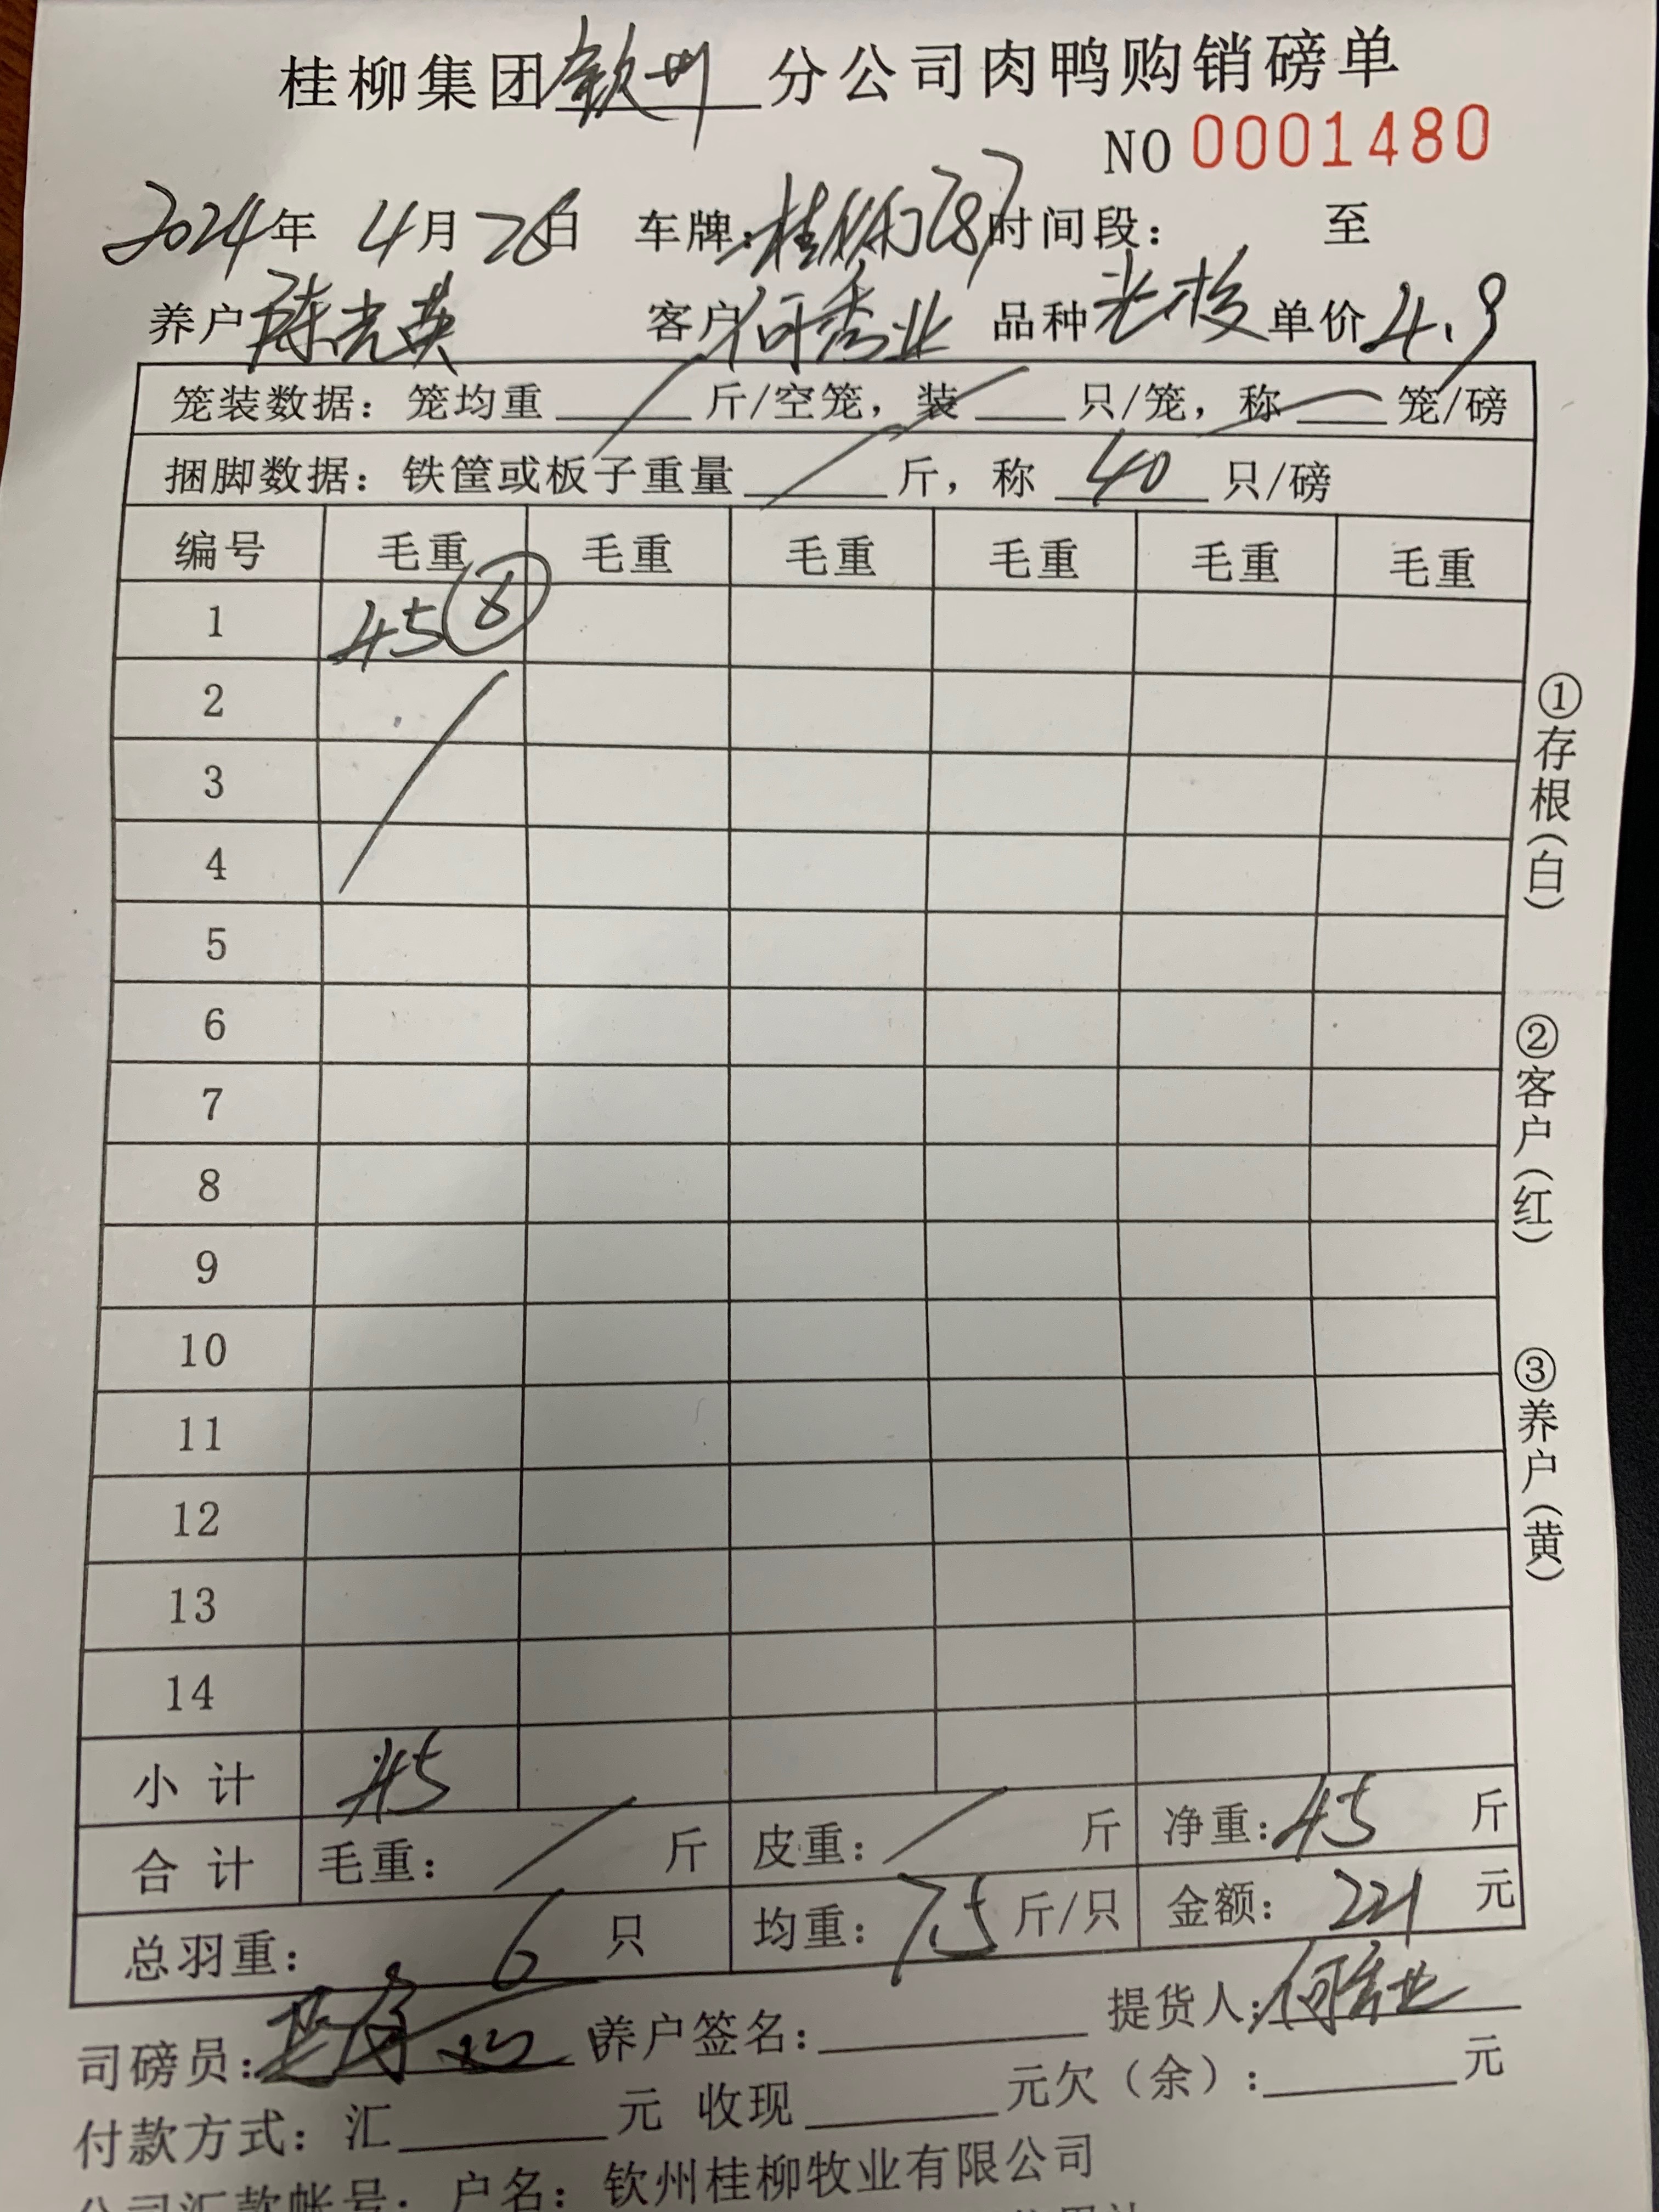 桂柳集团钦州分公司肉鸭购销磅单
NO 0001480
2024年 4月 26日 车牌: 桂 787 时间段: 至
养户 陈光英 客户 何秀业 品种 单价 4.9
笼装数据: 笼均重 斤/空笼, 装 只/笼, 称 笼/磅
捆脚数据: 铁筐或板子重量 斤, 称 40 只/磅
编号 毛重 毛重 毛重 毛重 毛重 毛重
1 45 ⑥
2
3
4
5
6
7
8
9
10
11
12
13
14
小计 45
合计 毛重: 斤 皮重: 斤 净重: 45 斤
总羽重: 6 只 均重: 7.5 斤/只 金额: 221 元
司磅员: 养户签名: 提货人: 何秀业
付款方式: 汇 元 收现 元欠(余): 元
公司汇款帐号: 户名: 钦州桂柳牧业有限公司
①存根(白)
②客户(红)
③养户(黄)